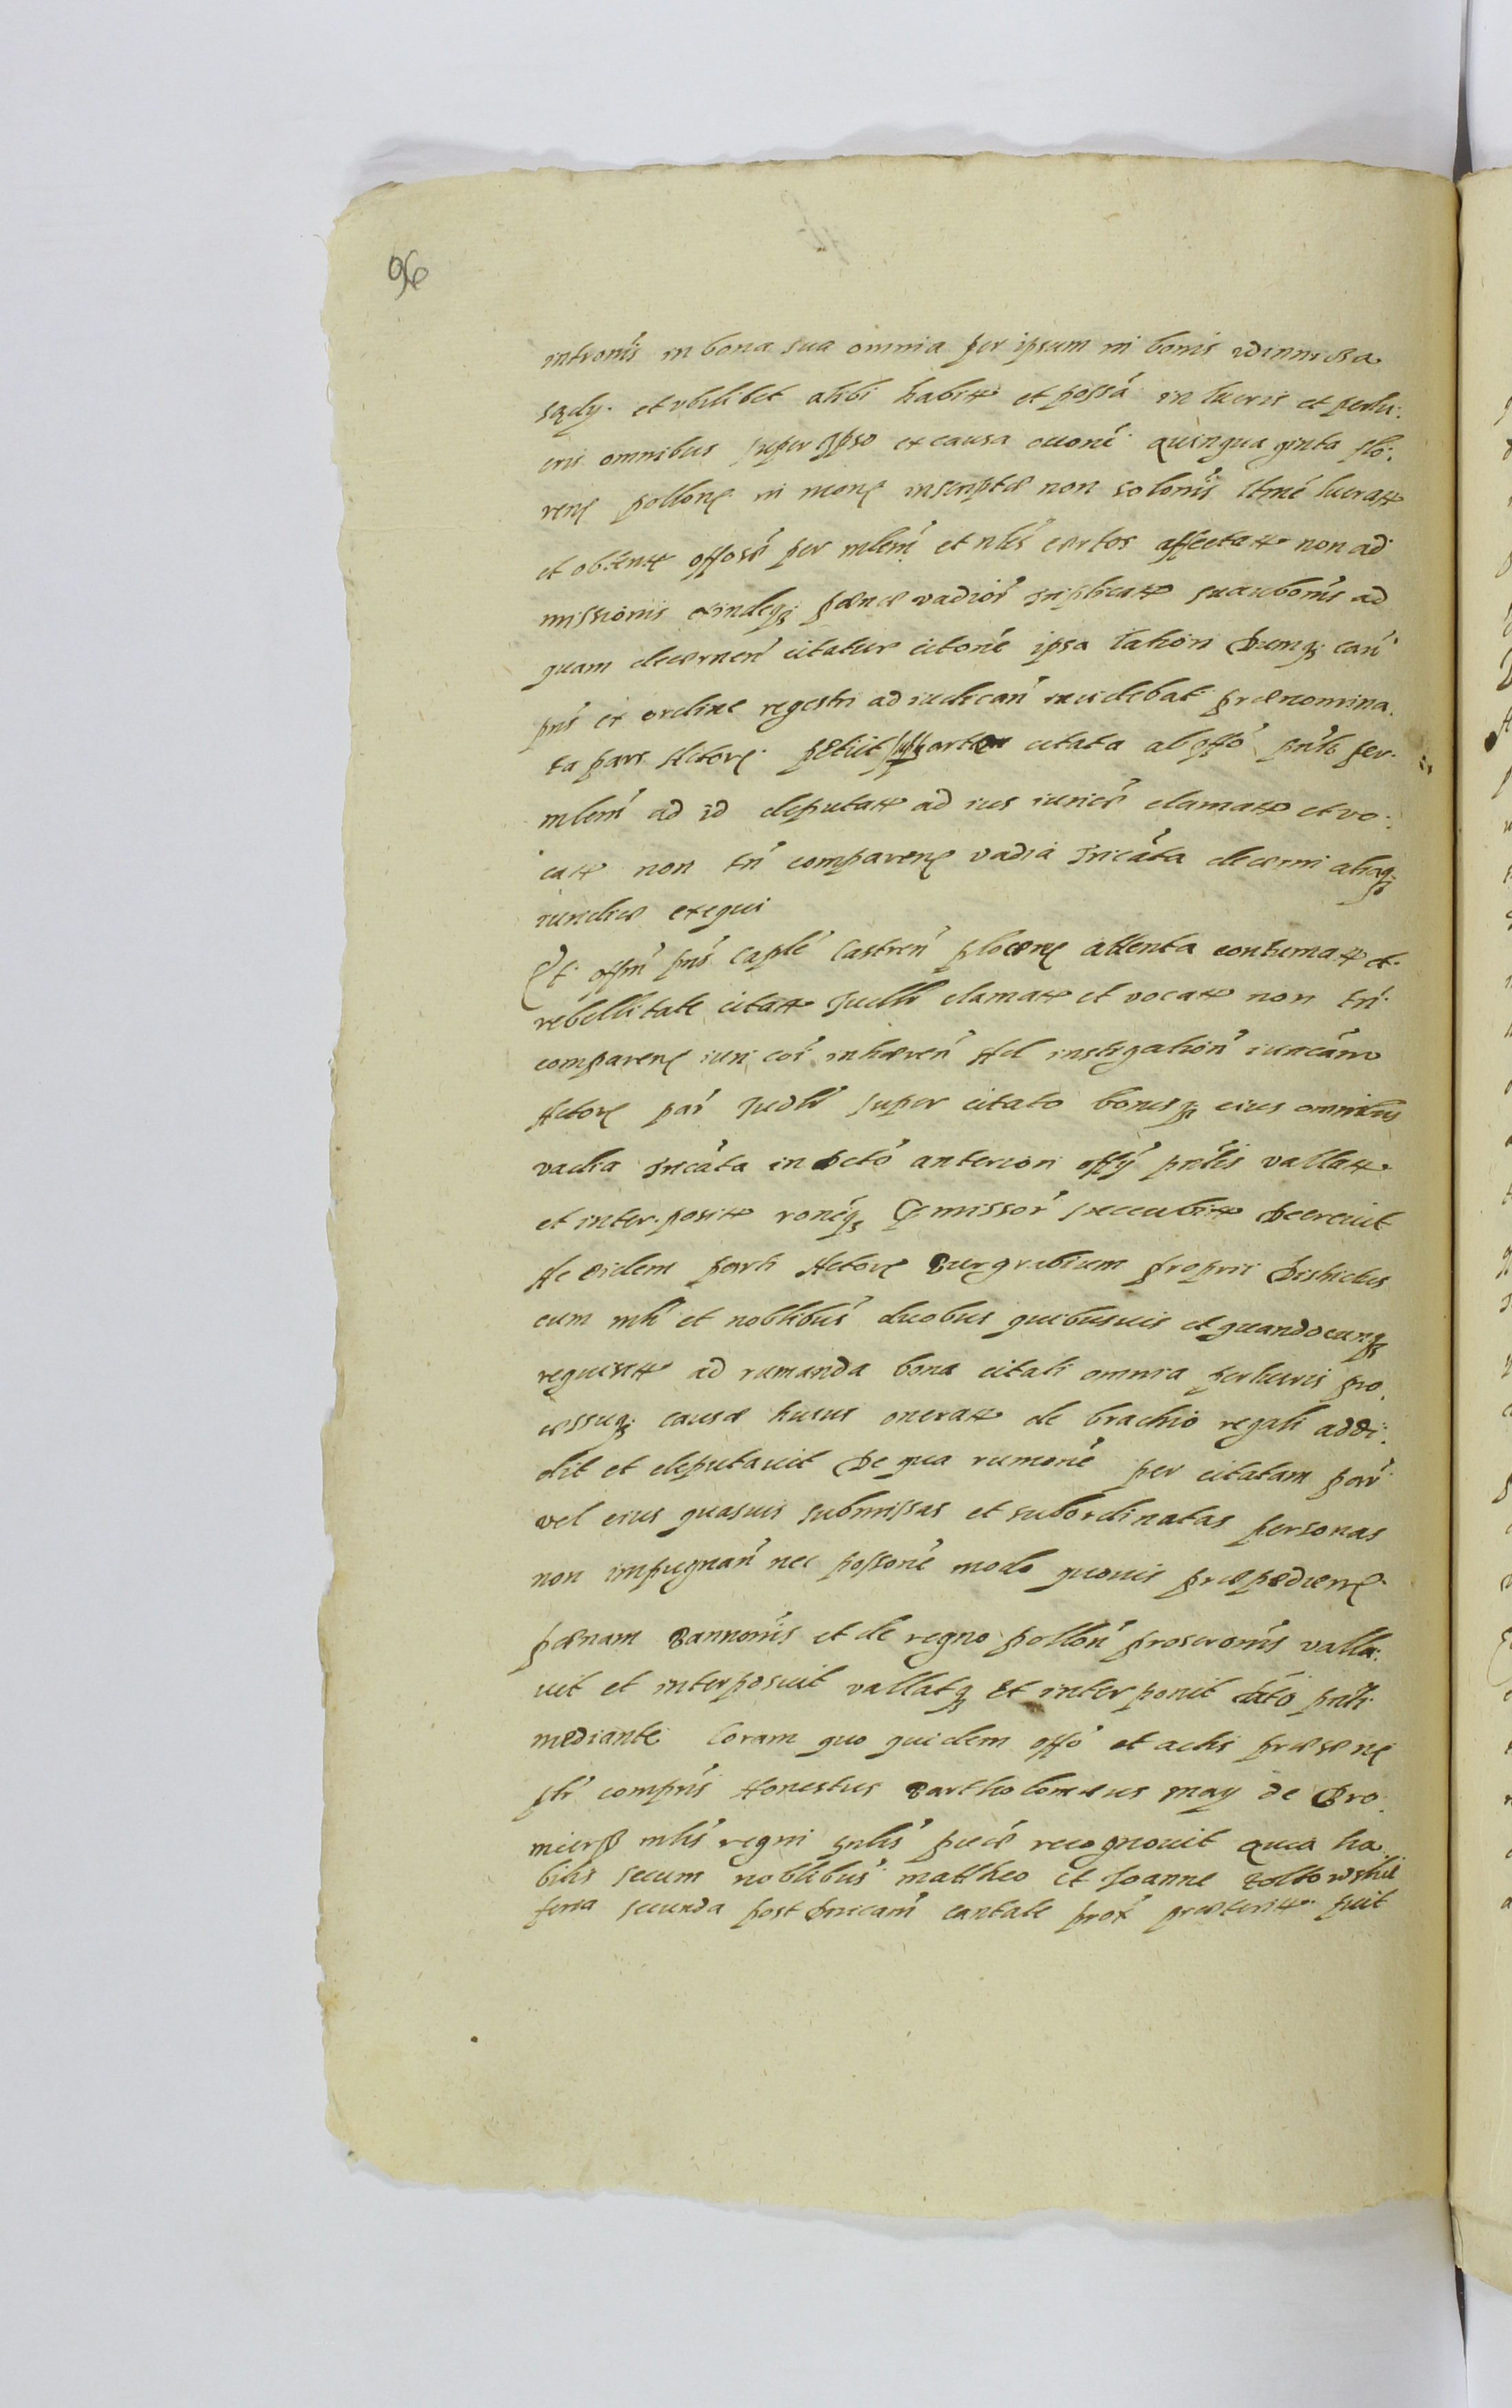 96
intronis in bona sua omnia per ipsum in bonis
et ubilibet alibi habitt et possa in lucris et perlu:
cris omnibus super ipso ex causa quinquaginta flo:
renę pollonę in monę inscriptæ non solonis ltmé lucratt
et obtentt offose per mlem et nłis certos affectatt non ad
missionis exindeq; pænæ vadior triplicatt suaubonis ad
quam decernen citatur citoné ipsa lation Dumq; can
pns ex ordine regestri ad iudican incidebat prænomina:
ta pars Actorę petiit partem citata ab offo pnłi per
mlem ad id deputatt ad ius iurice clamatt et vo:
catt non tn comparenę vadia tricata decerni aliaq;
iuridice exequi
Et offm pns Caple Castren plocenę attenta contumatt et
rebellitate citatt Iudłr clamatt et vocatt non tn
comparenę iuri coi inhæren Ad instigation
Actorę par Iudłr super citato bonisq; eius omnibus
vadia tricata in dcto anteriori offÿ pnłis vallatt
et interpositt ronéq; præmissor succubitt Decrevit
Ac eidem parti Actorę Burgrabium proprii Districtus
cum młi et noblibus duobus quibusuis et quandocunq;
requisitt ad rumanda bona citati omnia perlucris pro:
cessuq; causæ huius oneratt de brachio regali addi:
dit et deputavit De qua rumoné per citatam par
vel eius quasuis submissas et subordinatas personas
non impugnan nec possoné modo quouis præpædienę
pænam Bannonis et de regno pollon proscronis valla:
uit et interposuit vallatq; Et interponit dcto pnłi
mediante Coram quo quidem offo et actis præsenę
płr comprns Honestus Bartholomæus may de Dro:
młis regni gnłis præce recognouit quia ha:
bitis secum noblibus mattheo et Joanne
feria secunda post Dnicam cantate prox præteritt fuit